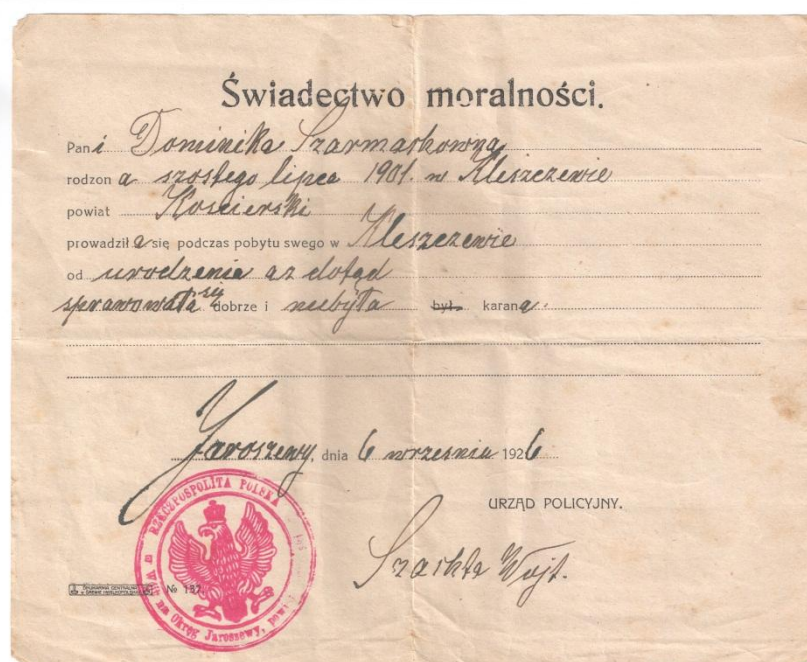 Świadectwo moralności.
Pani Dominika Szarmachowna
rodzona szostego lipca 1901. w Kleszczewie
powiat Kościerski
prowadziła się podczas pobytu swego w Kleszczewie
od urodzenia az dotąd
sprawowała się dobrze i niebyła był. karana.
Jaroszewy, dnia 6 września 1926
URZĄD POLICYJNY.
Szachta Wojt.
RZECZPOSPOLITA POLSKA
Wójt na Okręg Jaroszewy, powiat
DRUKARNIA CENTRALNA
No 157.